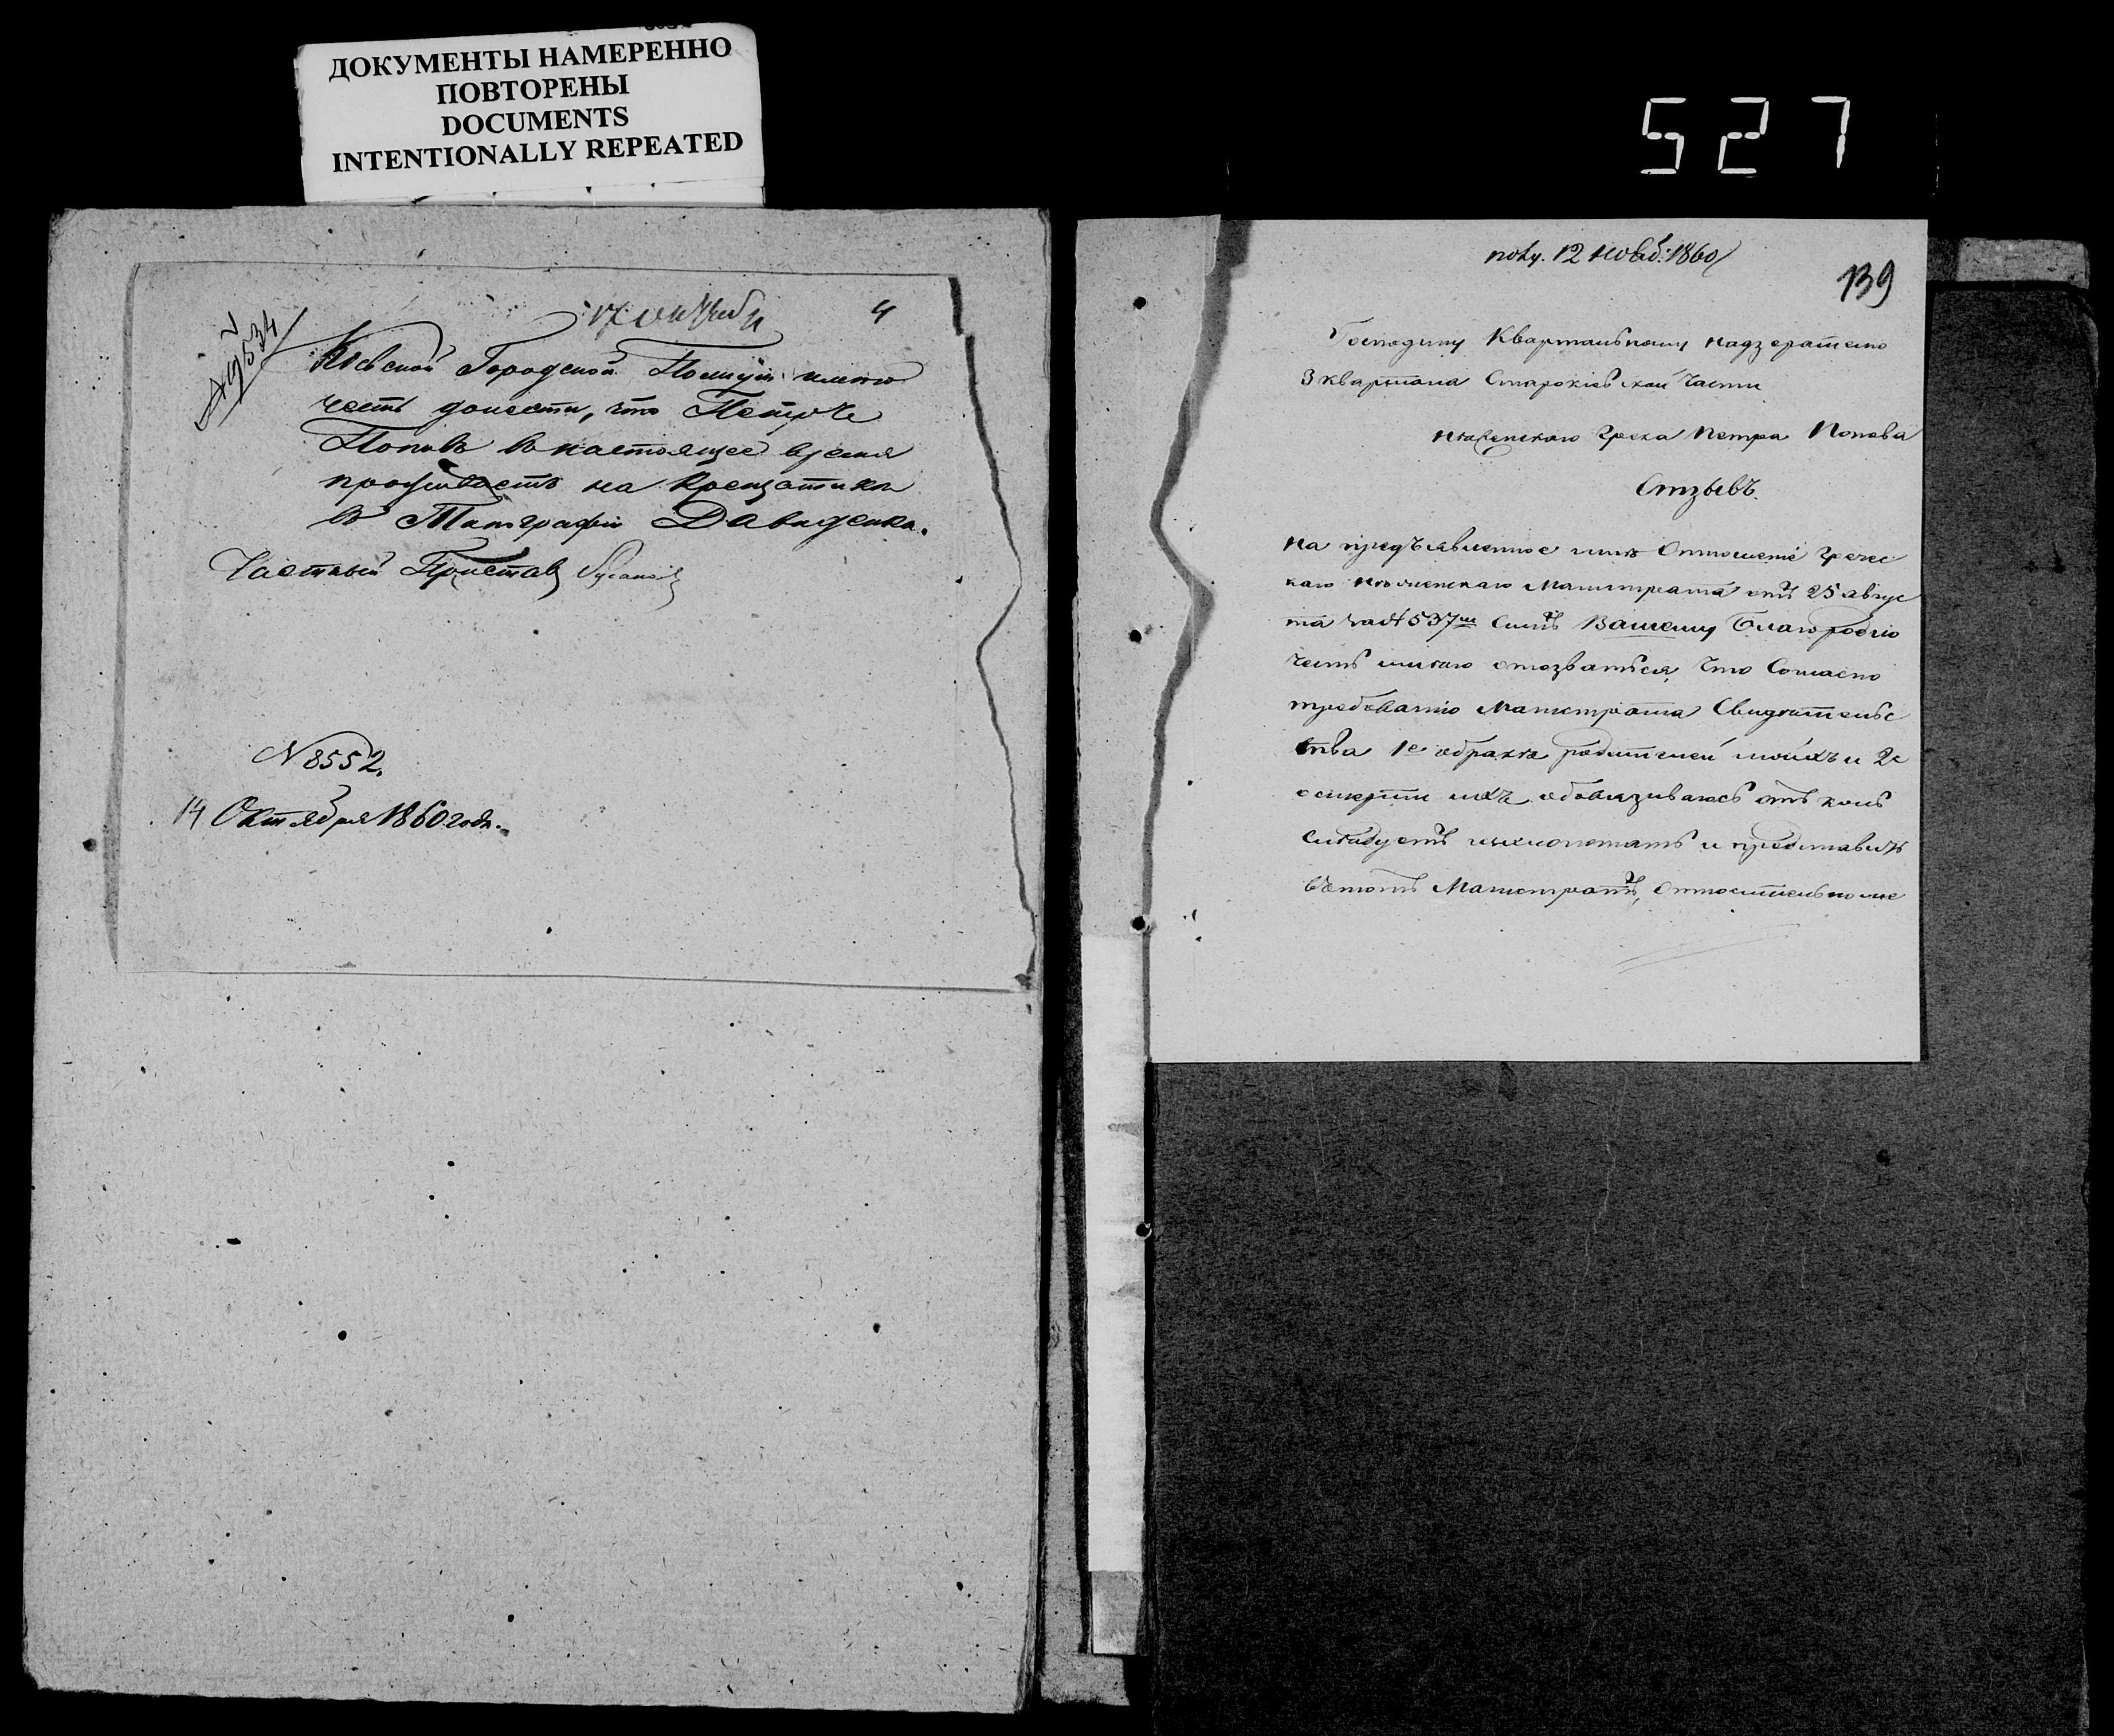 ДОКУМЕНТЫ НАМЕРЕННО
ПОВТОРЕНЫ
DOCUMENTS
INTENTIONALLY REPEATED
527
17 октября
4
Кіевской Городской Полиціи имею
честь донести, что Петръ
Поповъ в настоящее время
проживаетъ на Крещатике
въ Типографіи Давиденка.
Частный Приставъ
N 8552.
14 Октября 1860 года.
полу. 12 нояб: 1860
139
Господину Квартальному Надзерателю
3 квартала Старокіевской части
Нѣженскаго Грека Петра Попова
Отзывъ.
На предъявленное мнѣ Отношеніе Гречес
каго Нѣженскаго Магистрата отъ 25 авгус
та за № 537м Симъ Вашему Благородію
честь имѣю отозваться, что Согласно
требованію Магистрата Свидѣтельс
тва 1е о бракѣ родителей моихъ и 2е
о смерти ихъ, обовязиваюсь отъ коль
слѣдуетъ исхлопотать и представить
въ тотъ Магистратъ, относительно же